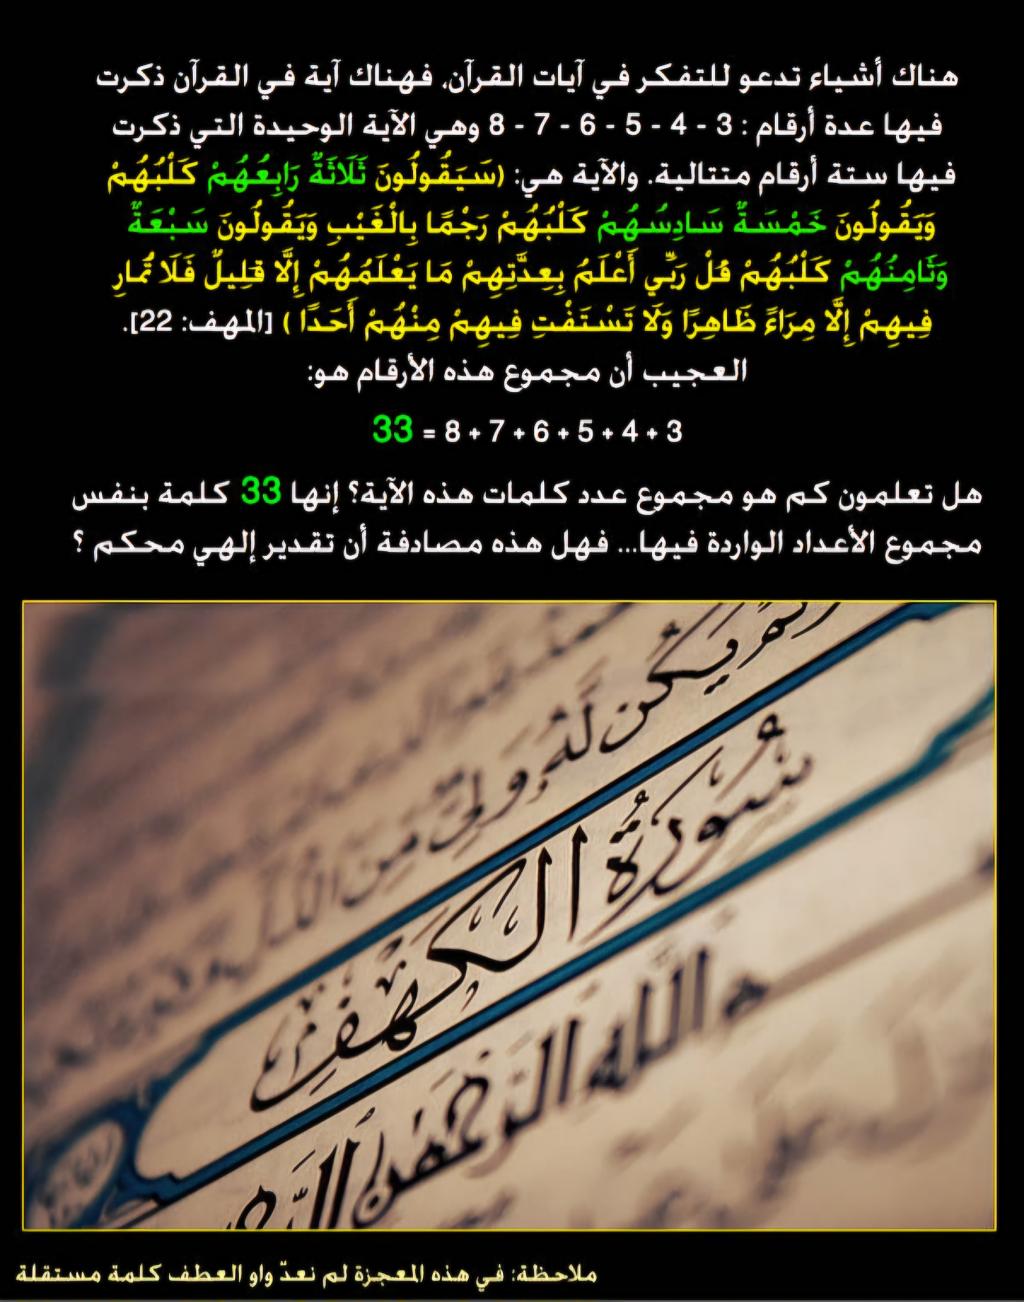 هناك أشياء تدعو للتفكر في آيات القرآن، فهناك آية في القرآن ذكرت
فيها عدة أرقام : 3 - 4 - 5 - 6 - 7 - 8 وهي الآية الوحيدة التي ذكرت
فيها ستة أرقام متتالية. والآية هي: (سَيَقُولُونَ ثَلَاثَةٌ رَابِعُهُمْ كَلْبُهُمْ
وَيَقُولُونَ خَمْسَةٌ سَادِسُهُمْ كَلْبُهُمْ رَجْمًا بِالْغَيْبِ وَيَقُولُونَ سَبْعَةٌ
وَثَامِنُهُمْ كَلْبُهُمْ قُلْ رَبِّي أَعْلَمُ بِعِدَّتِهِمْ مَا يَعْلَمُهُمْ إِلَّا قَلِيلٌ فَلَا تُمَارِ
فِيهِمْ إِلَّا مِرَاءً ظَاهِرًا وَلَا تَسْتَفْتِ فِيهِمْ مِنْهُمْ أَحَدًا ) [المهف: 22].
العجيب أن مجموع هذه الأرقام هو:
3 + 4 + 5 + 6 + 7 + 8 = 33
هل تعلمون كم هو مجموع عدد كلمات هذه الآية؟ إنها 33 كلمة بنفس
مجموع الأعداد الواردة فيها... فهل هذه مصادفة أن تقدير إلهي محكم ؟
يَكُن لَّهُ وَلِيٌّ مِّنَ
سُورَةُ الكَهْفِ
اللَّهِ الرَّحْمَٰنِ
ملاحظة: في هذه المعجزة لم نعدّ واو العطف كلمة مستقلة